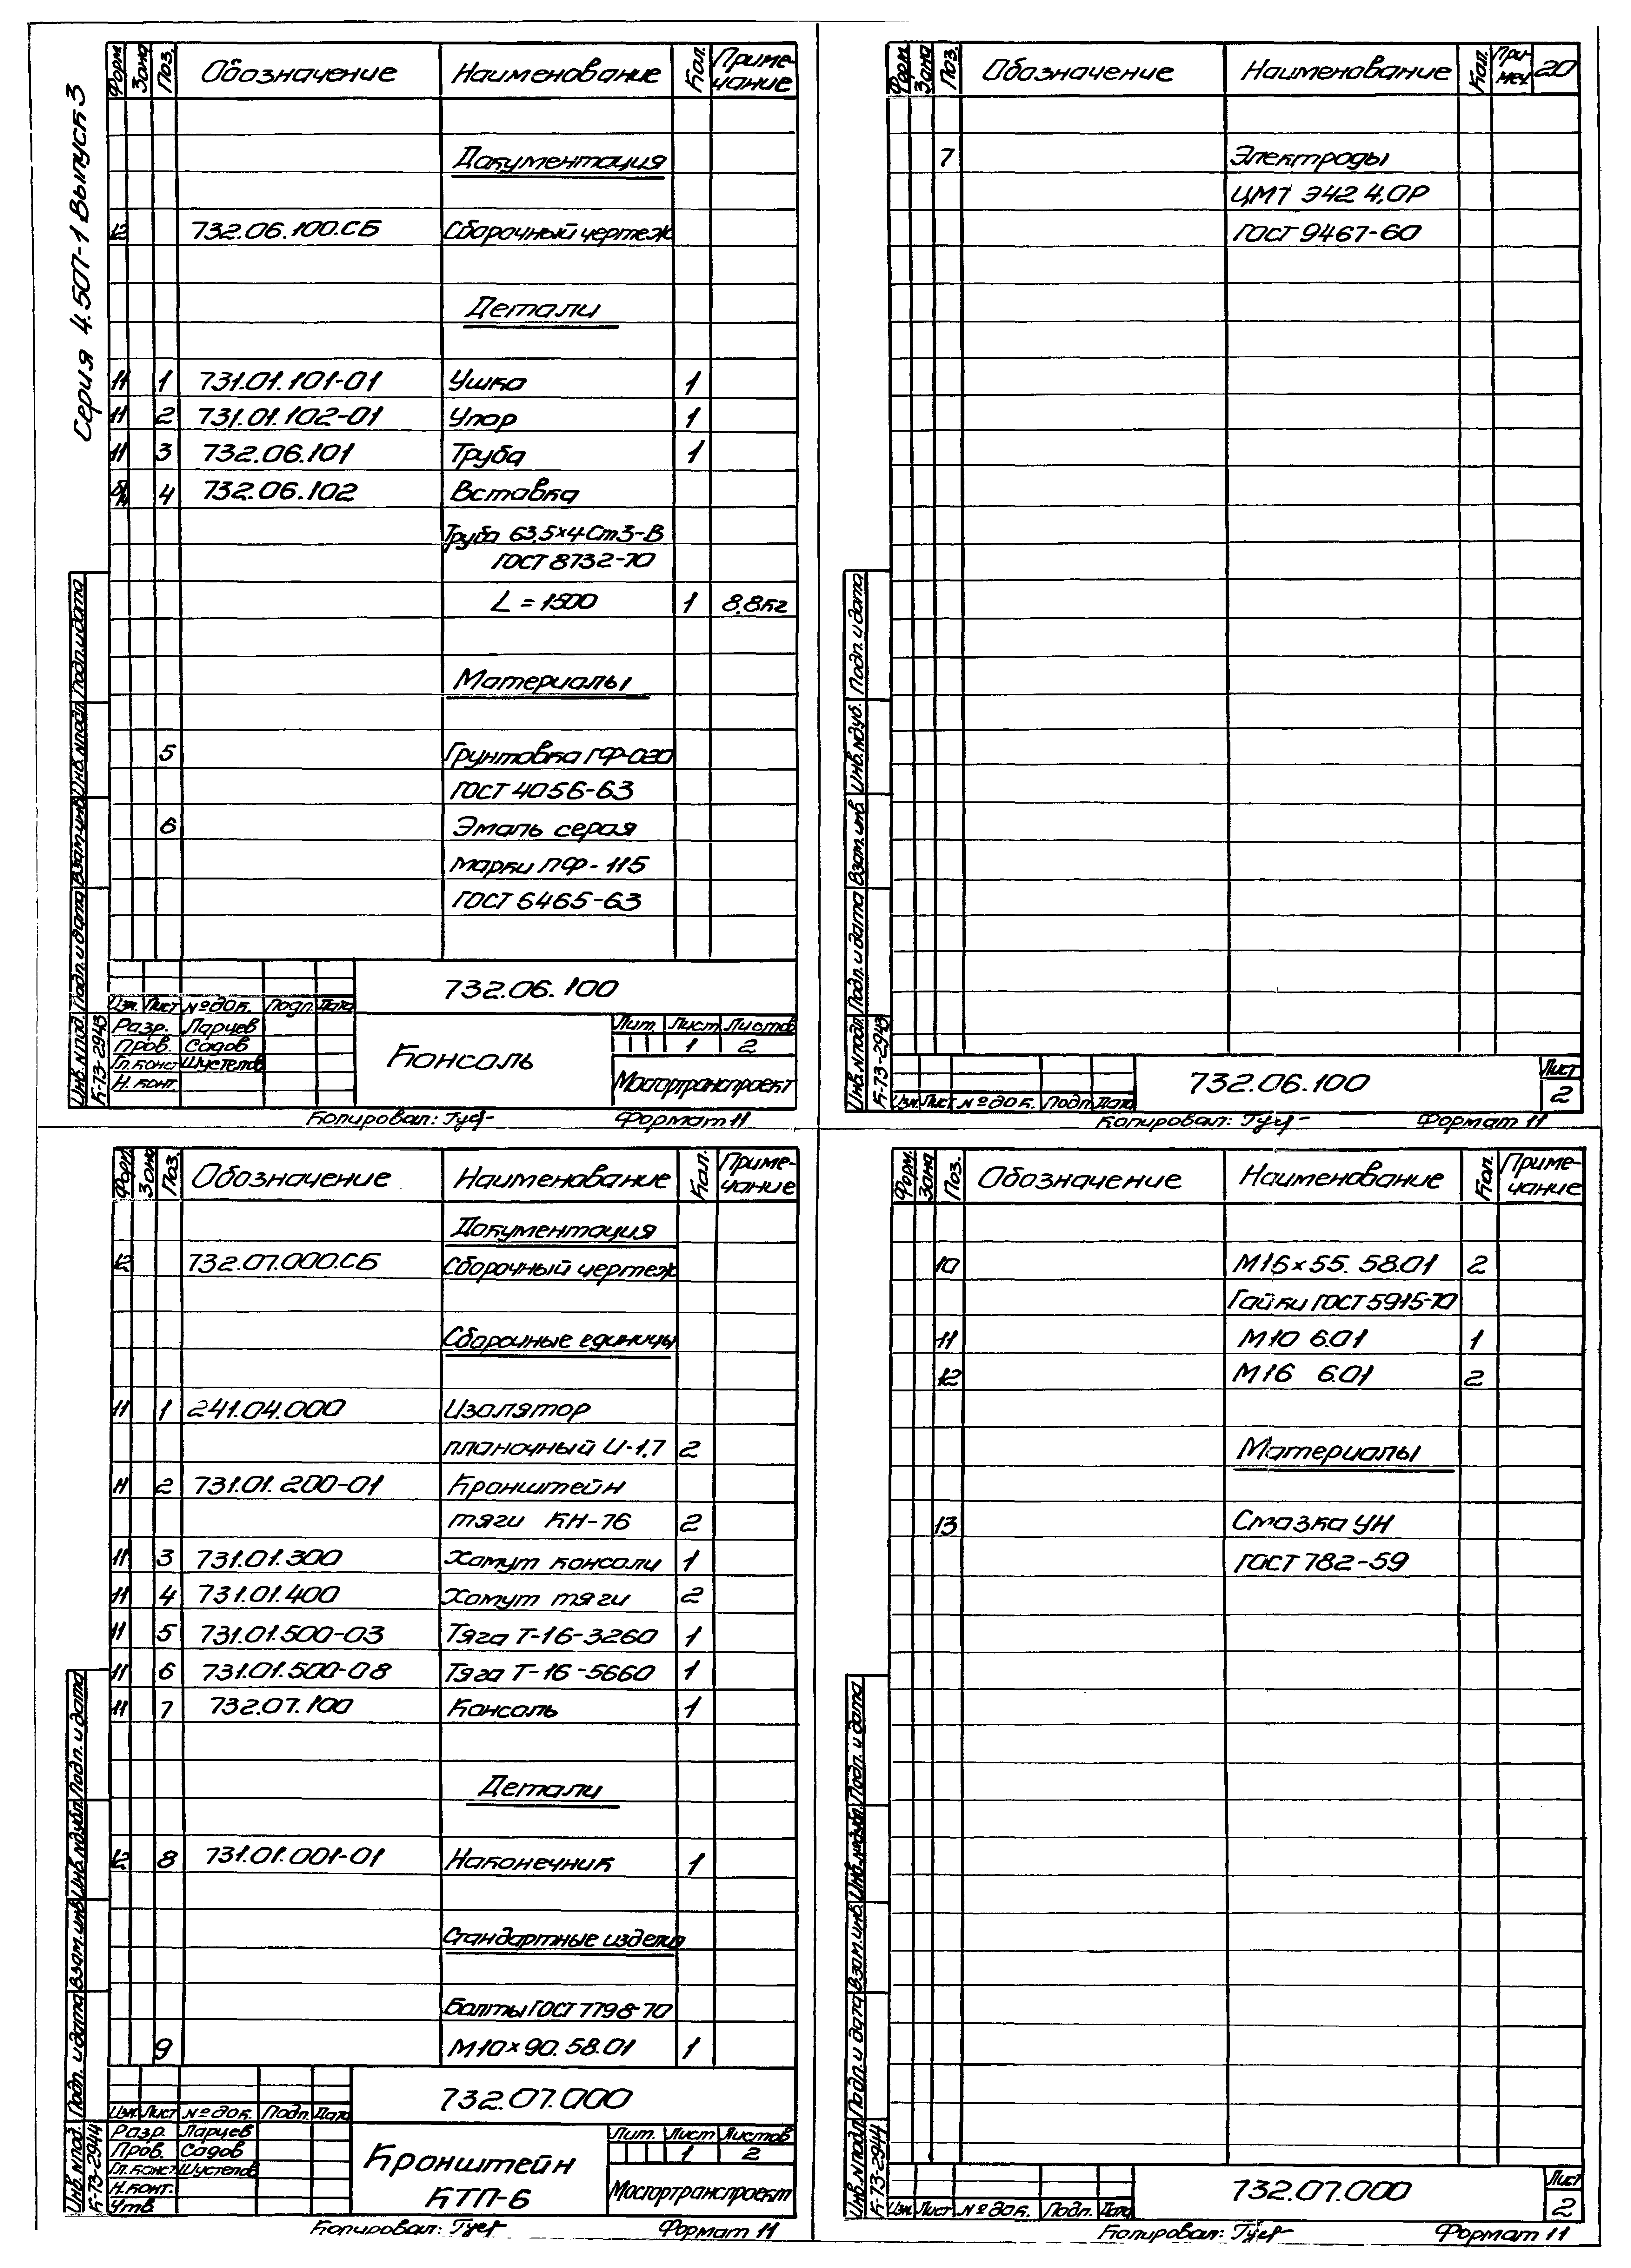 Серия 4.507-1 Выпуск 3
Форм Зона Поз. Обозначение Наименование Кол. Приме-
чание
Документация
12 732.06.100.СБ Сборочный чертеж
Детали
11 1 731.01.101-01 Ушко 1
11 2 731.01.102-01 Упор 1
11 3 732.06.101 Труба 1
б/ч 4 732.06.102 Вставка
Труба 63,5×4-Ст3-В
ГОСТ 8732-70
L = 1500 1 8,8кг
Материалы
5 Грунтовка ГФ-020
ГОСТ 4056-63
6 Эмаль серая
марки ПФ-115
ГОСТ 6465-63
732.06.100
Изм. Лист № док. Подп. Дата
Разр. Ларцев
Пров. Садов
Гл. конст Шустепов
Н. конт.
Консоль
Лит. Лист Листов
1 2
Мосгортранспроект
Инв.№ подл. Подп. и дата Взам.инв. Инв.№ подл. Подп. и дата
К-73-2943
Копировал: Формат 11
Форм. Зона Поз. Обозначение Наименование Кол. При-
меч 20
7 Электроды
ЦМТ Э42 4,0Р
ГОСТ 9467-60
Инв.№ подл. Подп. и дата Взам. инв. Инв.№ дуб. Подп. и дата
К-73-2943
Изм. Лист № док. Подп. Дата
732.06.100
Лист
2
Копировал: Формат 11
Форм. Зона Поз. Обозначение Наименование Кол. Приме-
чание
Документация
12 732.07.000.СБ Сборочный чертеж
Сборочные единицы
11 1 241.04.000 Изолятор
планочный И-1,7 2
11 2 731.01.200-01 Кронштейн
тяги КН-76 2
11 3 731.01.300 Хомут консоли 1
11 4 731.01.400 Хомут тяги 2
11 5 731.01.500-03 Тяга Т-16-3260 1
11 6 731.01.500-08 Тяга Т-16-5660 1
11 7 732.07.100 Консоль 1
Детали
12 8 731.01.001-01 Наконечник 1
Стандартные изделия
Болты ГОСТ 7798-70
9 М10×90.58.01 1
732.07.000
Изм. Лист № док. Подп. Дата
Разр. Ларцев
Пров. Садов
Гл. конст Шустепов
Н.конт.
Утв.
Кронштейн
КТП-6
Лит. Лист Листов
1 2
Мосгортранспроект
Инв.№ подл. Подп. и дата Взам.инв. Инв.№ дубл. Подп. и дата
К-73-2944
Копировал: Формат 11
Форм. Зона Поз. Обозначение Наименование Кол. Приме-
чание
10 М16×55. 58.01 2
Гайки ГОСТ 5915-70
11 М10 6.01 1
12 М16 6.01 2
Материалы
13 Смазка УН
ГОСТ 782-59
Инв.№ подл. Подп. и дата Взам.инв. Инв.№ дубл. Подп. и дата
К-73-2944
Изм. Лист № док. Подп. Дата
732.07.000
Лист
2
Копировал: Формат 11